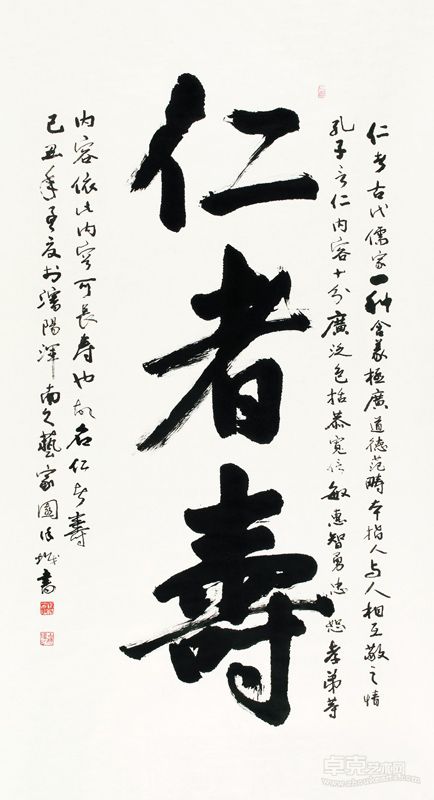 仁者古代儒家一种含義極廣道德范疇本指人与人相互敬之情
孔子言仁内容十分廣泛包括恭寬信敏惠智勇忠恕孝弟等
仁者壽
内容依此内容可長壽也故名仁者壽
己丑年孟夏於瀋陽渾南之藝家園書
卓克艺术网